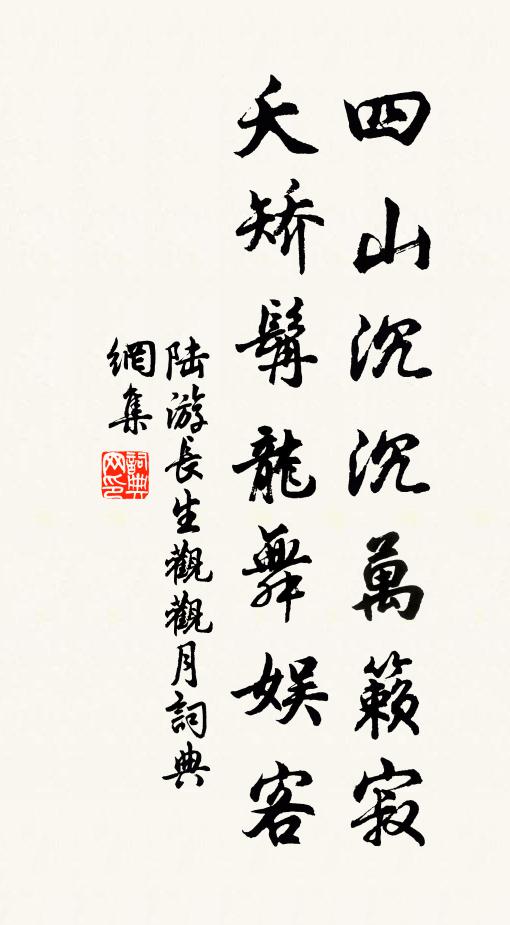 四山沉沉萬籟寂
夭矯髯龍舞娛客
陆游長生觀觀月詞典
網集
詞典網印